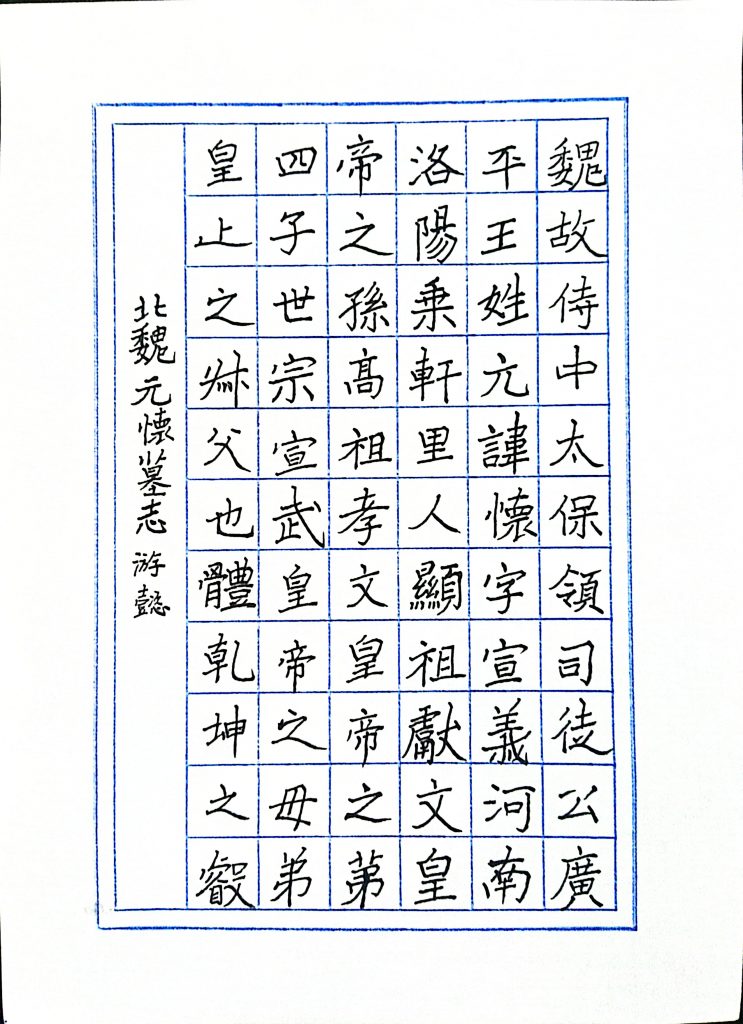 魏故侍中太保領司徒公廣
平王姓元諱懷字宣義河南
洛陽乘軒里人顯祖獻文皇
帝之孫高祖孝文皇帝之第
四子世宗宣武皇帝之母弟
皇上之叔父也體乾坤之叡
北魏元懷墓志 游懿